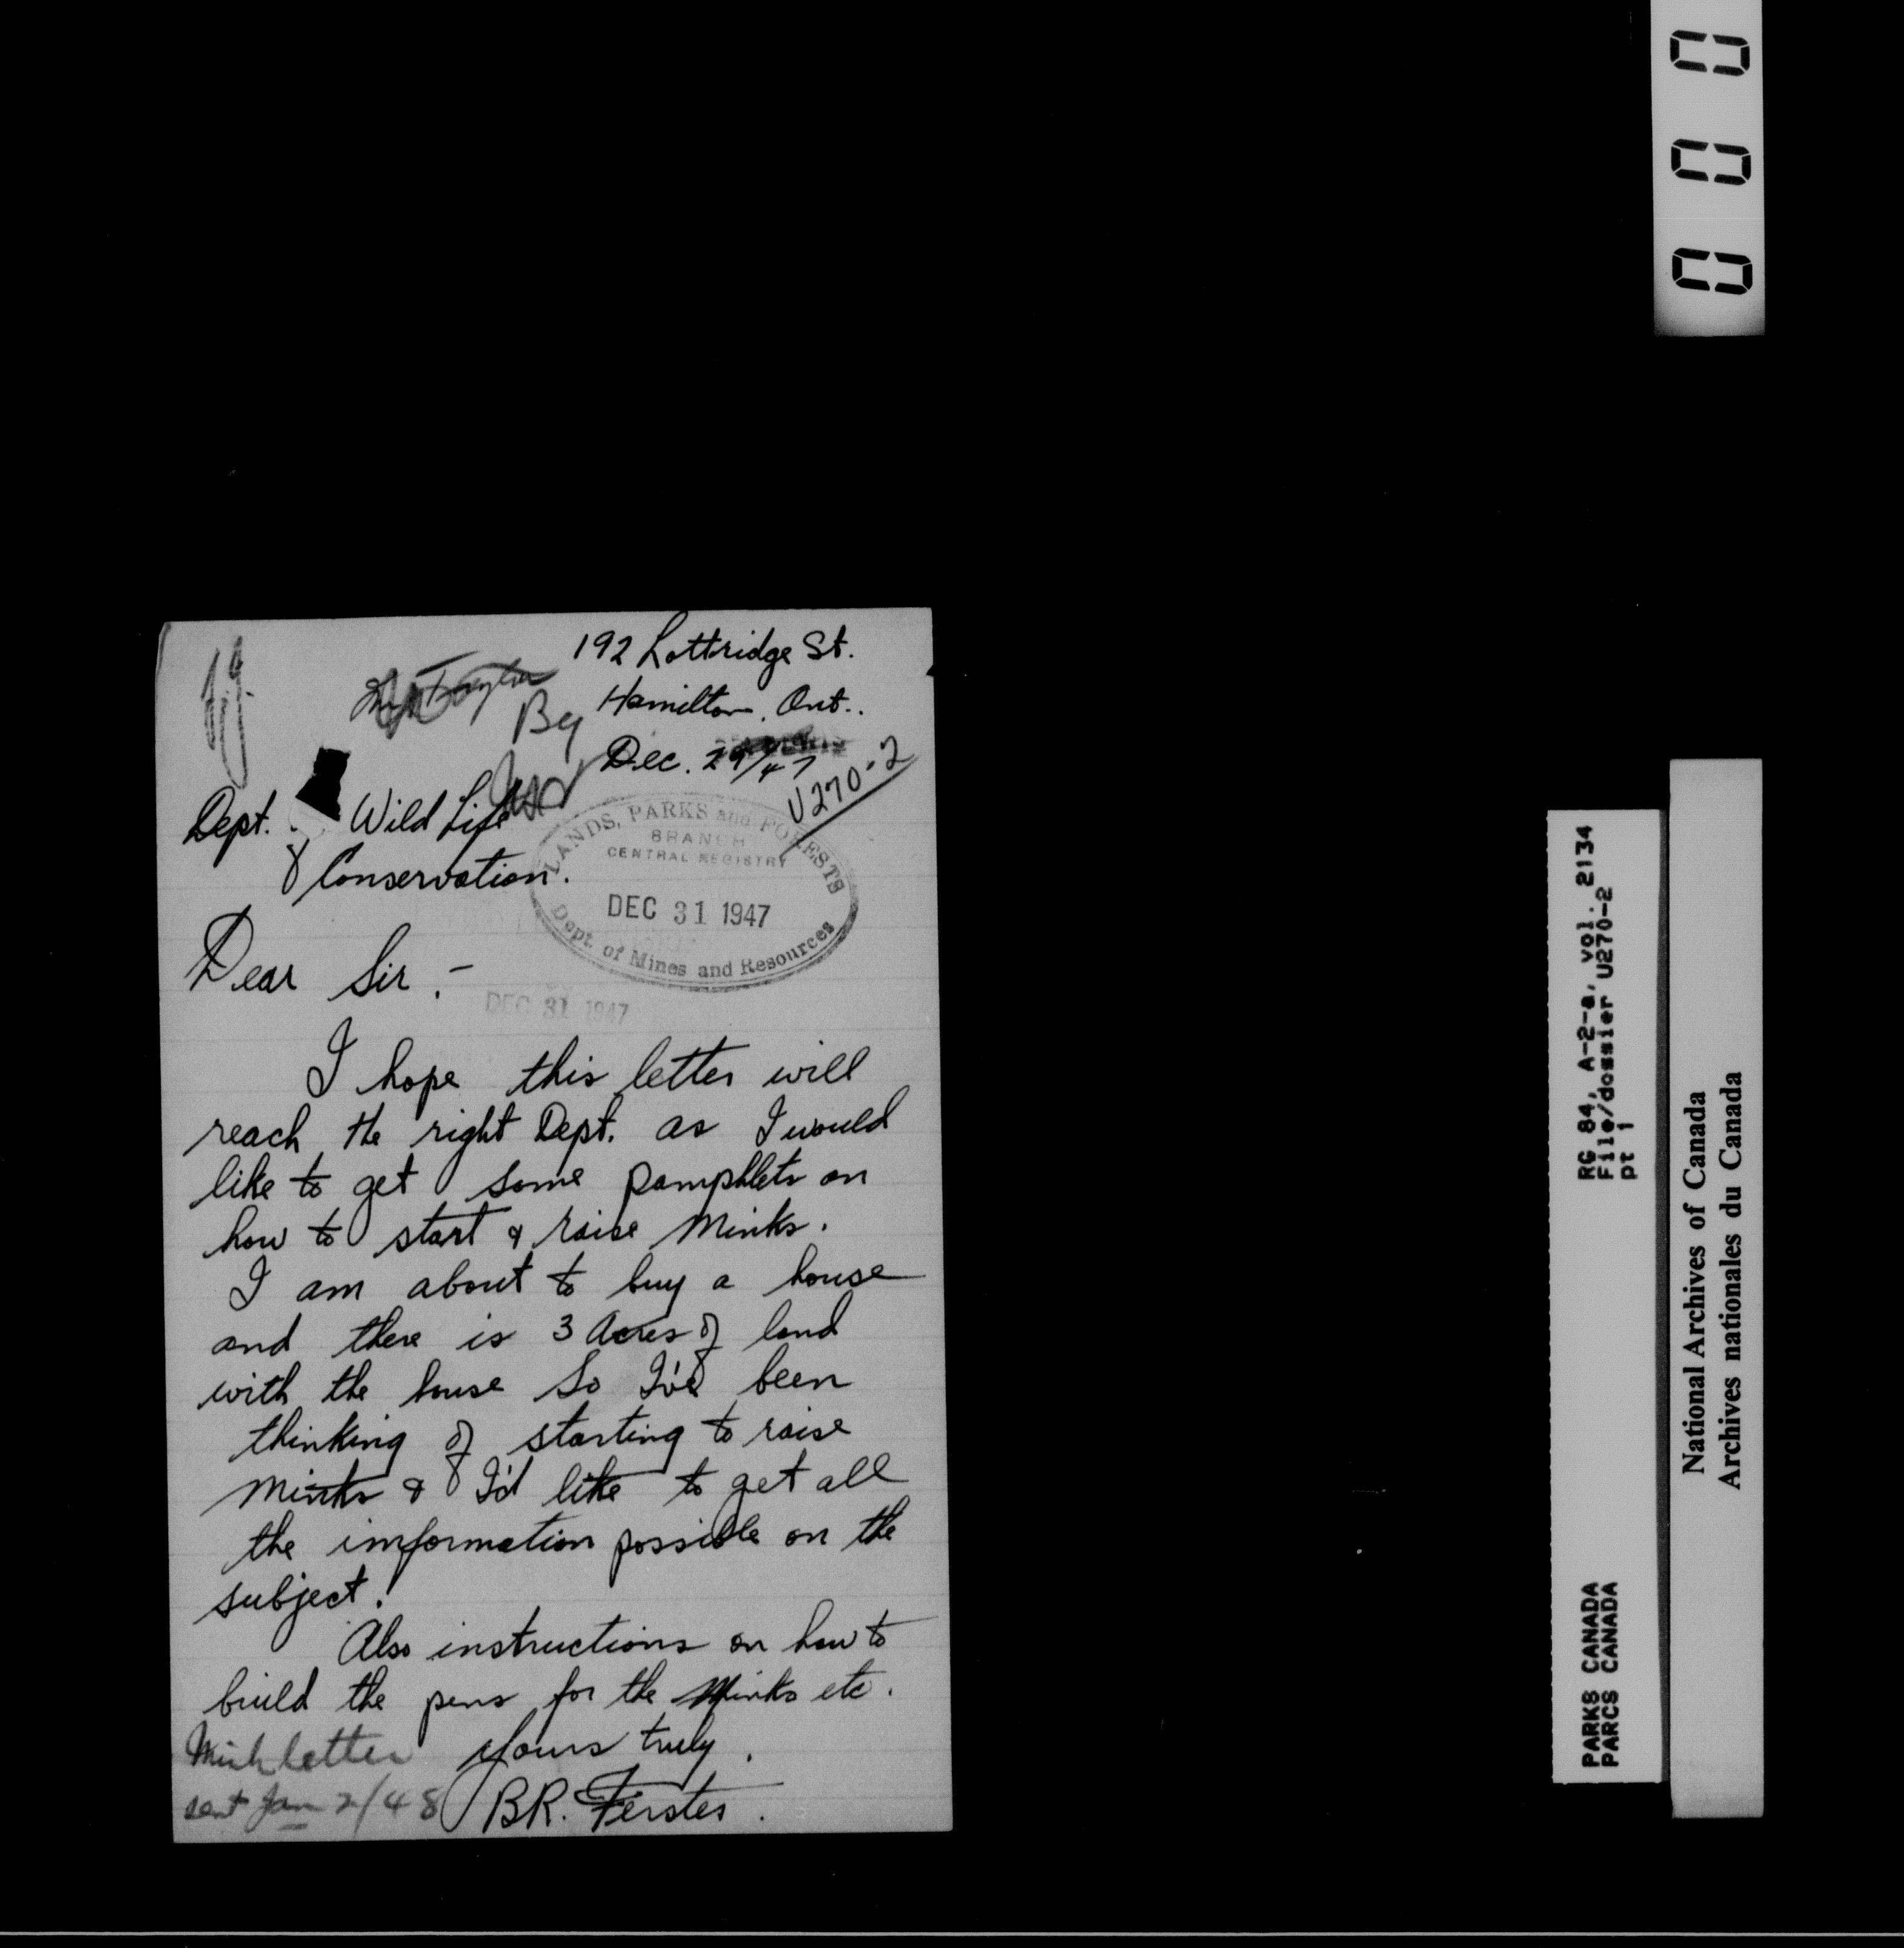 192 Lottridge St.
Hamilton, Ont..
By
Dec. 29/47
U270-2
Dept. Wild Life
& Conservation.
LANDS, PARKS and FORESTS
BRANCH
CENTRAL REGISTRY
DEC 31 1947
Dept. of Mines and Resources
Dear Sir :-
DEC 31 1947
I hope this letter will
reach the right Dept. as I would
like to get some pamphlets on
how to start & raise Minks.
I am about to buy a house
and there is 3 Acres of land
with the house So I've been
thinking of starting to raise
Minks & I'd like to get all
the imformation possible on the
subject.
Also instructions on how to
build the pens for the Minks etc.
Yours truly,
Mink letter
sent Jan 2/48
BR. Ferstes.
000
RG 84, A-2-a, vol. 2134
File/dossier U270-2
pt 1
PARKS CANADA
PARCS CANADA
National Archives of Canada
Archives nationales du Canada